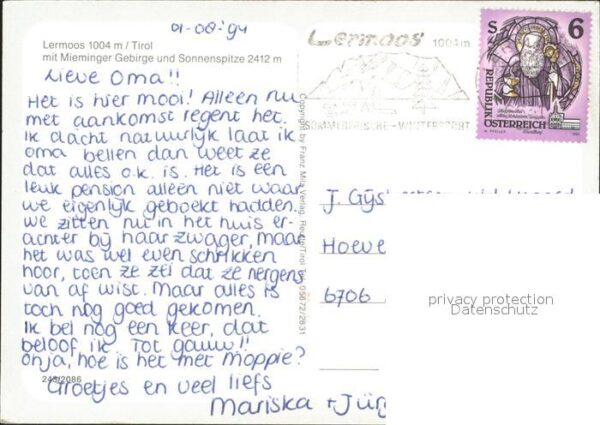 01-08-'94
Lermoos 1004 m / Tirol
mit Mieminger Gebirge und Sonnenspitze 2412 m
Lieve Oma!!
Het is hier mooi! Alleen nu
met aankomst regent het.
Ik dacht natuurlijk laat ik
oma bellen dan weet ze
dat alles o.k. is. Het is een
leuk pension alleen niet waar
we eigenlijk geboekt hadden.
We zitten nu in het huis er-
achter bij haar zwager, maar
het was wel even schrikken
hoor, toen ze zei dat ze nergens
van af wist. Maar alles is
toch nog goed gekomen.
Ik bel nog een keer, dat
beloof ik. Tot gauw!!
Ohja, hoe is het met Moppie?
Groetjes en veel liefs
Mariska + Jür
243/2086
Copyright by Franz Milz Verlag, Reutte/Tirol Tel. 05672/2831
Lermoos 1004m
SOMMERFRISCHE - WINTERSPORT
S 6
REPUBLIK
ÖSTERREICH
J. Gijs
Hoeve
6706
privacy protection
Datenschutz